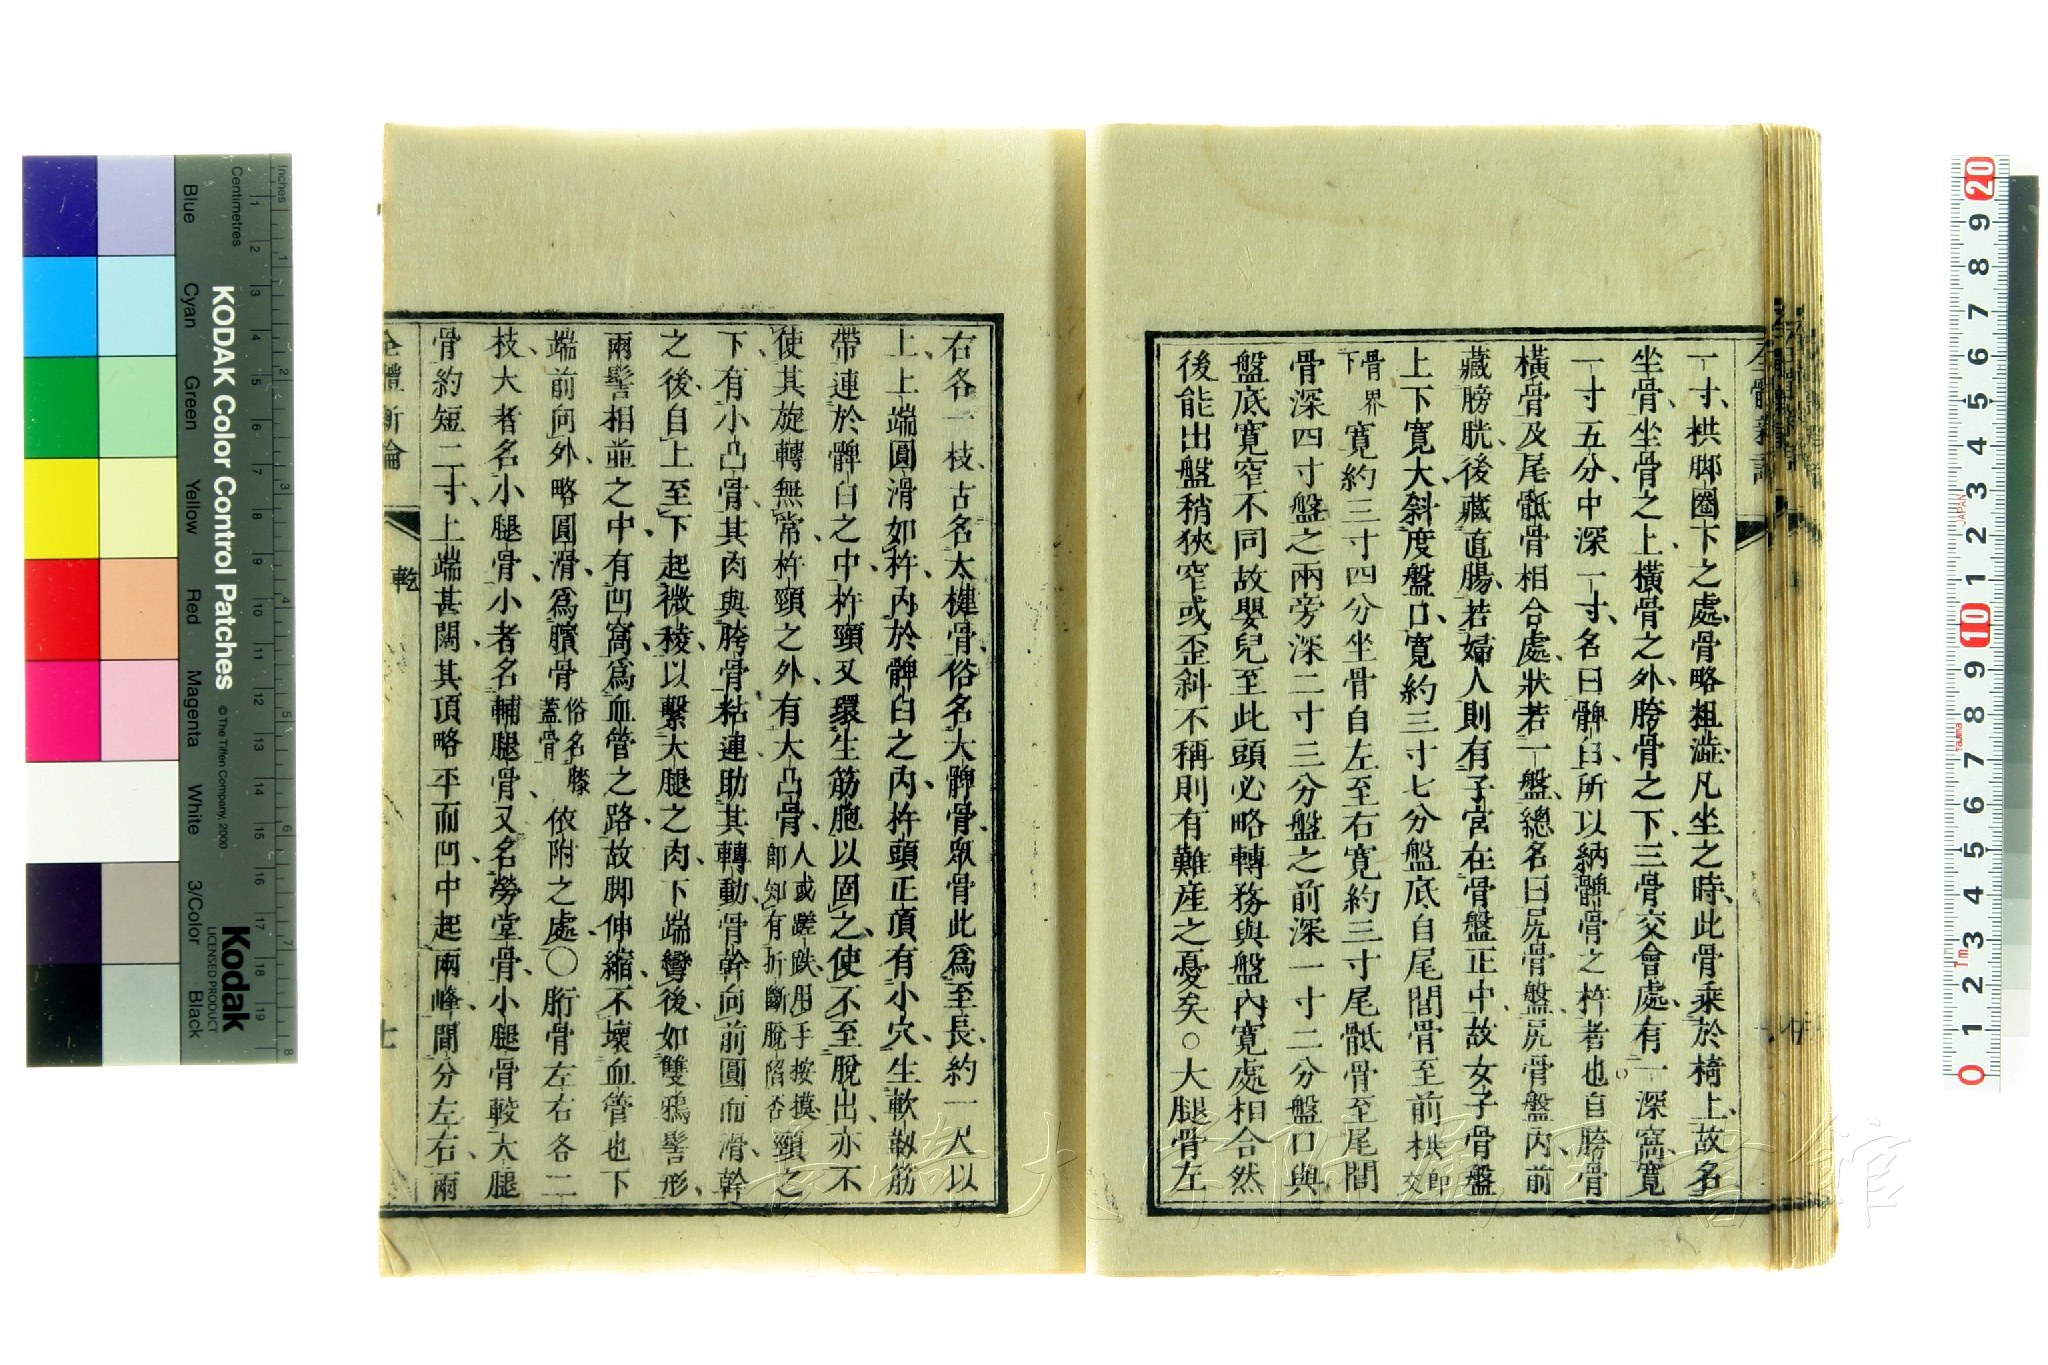 一寸、栱脚圈下之處、骨略粗澁、凡坐之時、此骨乘於椅上、故名
坐骨、坐骨之上、橫骨之外、胯骨之下、三骨交會處、有一深窩、寬
一寸五分、中深一寸、名曰髀臼、所以納髀骨之杵者也、自胯骨
橫骨及尾骶骨相合處、狀若一盤、總名曰尻骨盤、尻骨盤內、前
藏膀胱、後藏直腸、若婦人則有子宮在骨盤正中、故女子骨盤
上下寬大、斜度盤口、寬約三寸七分、盤底自尾閭骨至前栱即交
骨界下寬約三寸四分坐骨自左至右寬約三寸尾骶骨至尾閭
骨深四寸盤之兩旁深二寸三分盤之前深一寸二分盤口與
盤底寬窄不同故嬰兒至此頭必略轉務與盤內寬處相合然
後能出盤稍狹窄或歪斜不稱則有難產之憂矣○大腿骨左
右各一枝、古名大楗骨、俗名大髀骨、眾骨此為至長、約一尺以
上、上端圓滑如杵、內於髀臼之內、杵頭正頂有小穴、生軟韌筋
帶連於髀臼之中、杵頸又環生筋胞以固之、使不至脫出、亦不
使其旋轉無常、杵頸之外、有大凸骨、人或蹉跌、用手按摸、即知有折斷脫陷否頸之
下、有小凸骨、其肉與胯骨粘連、助其轉動、骨幹向前圓而滑、幹
之後、自上至下起微稜、以繫大腿之肉、下端彎後、如雙鴉髻形、
兩髻相並之中、有凹窩、為血管之路、故脚伸縮、不壞血管也、下
端前向外、略圓滑、為臏骨俗名膝蓋骨依附之處、○胻骨左右各二
枝、大者名小腿骨、小者名輔腿骨、又名勞堂骨、小腿骨較大腿
骨約短二寸、上端甚闊、其頂略平而凹、中起兩峰、間分左右、兩
全體新論
乾
七
全體新論
KODAK Color Control Patches
© The Tiffen Company, 2000
Kodak
LICENSED PRODUCT
Inches
Centimetres
Blue
Cyan
Green
Yellow
Red
Magenta
White
3/Color
Black
JAPAN
Tajima
長崎大学附属図書館